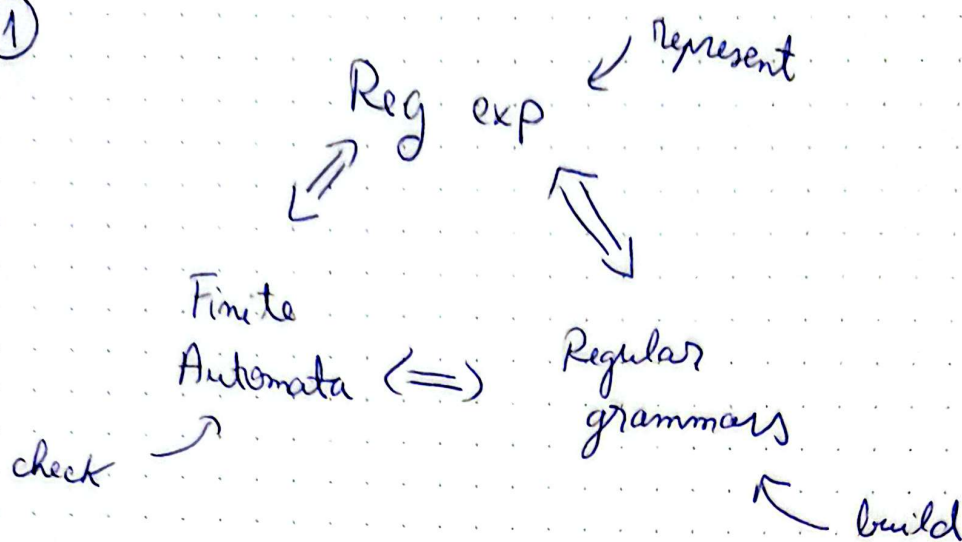 1
represent
Reg exp
Finite
Automata <=> Regular
grammars
check
build